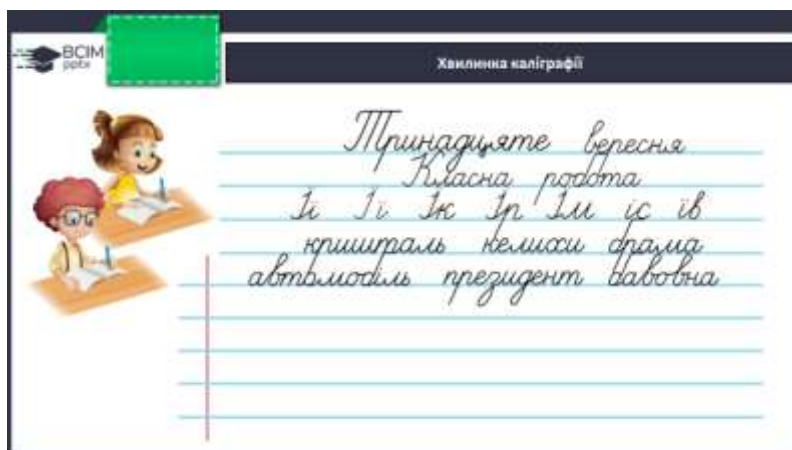 ВСІМ
pptx
Хвилинка каліграфії
Тринадцяте вересня
Класна робота
Її Її Ік Ір Ім іс ів
кришталь келихи брама
автомобіль президент бавовна